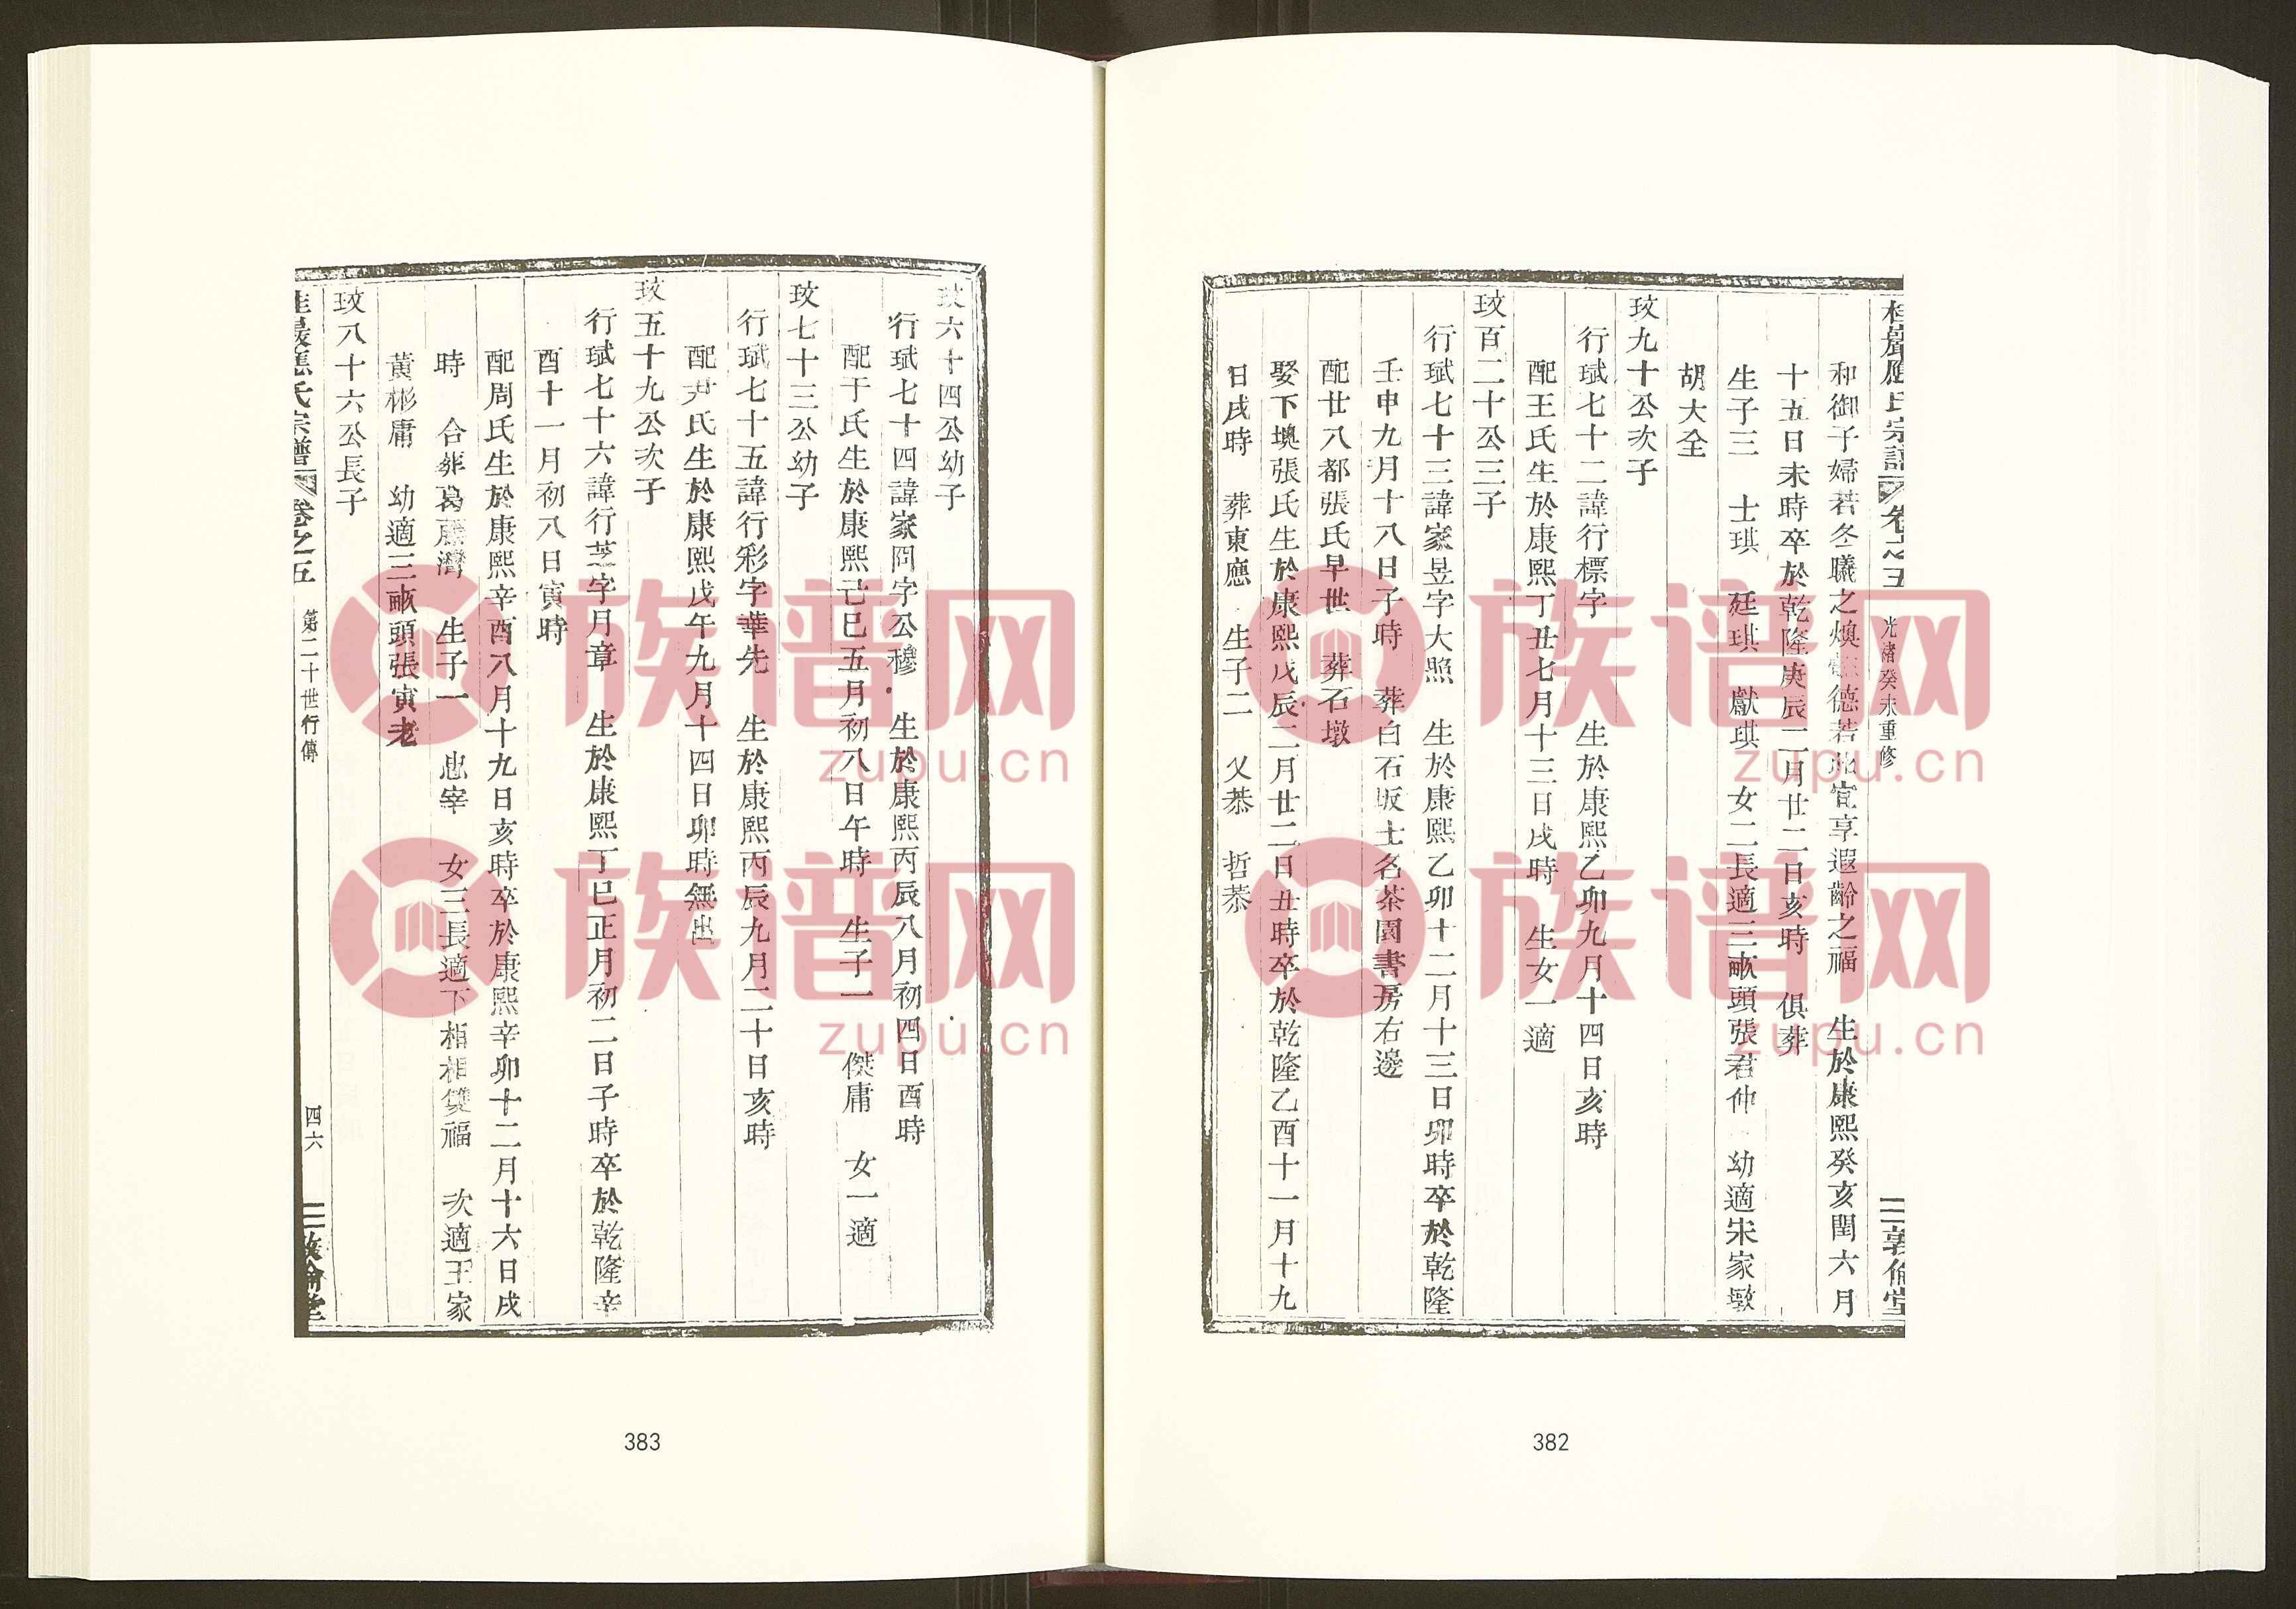 桂巖應氏宗譜 卷之五 光緒癸未重修 敦倫堂
和御子婦若冬曦之燠 德若此宜享遐齡之福 生於康熙癸亥閏六月
十五日未時卒於乾隆庚辰二月廿二日亥時 俱葬
生子三 士琪 廷琪 獻琪 女二長適三畝頭張君仲 幼適朱家墩
胡大全
玟九十公次子
行珷七十二諱行標字 生於康熙乙卯九月十四日亥時
配王氏生於康熙丁丑七月十三日戌時 生女一適
玟百二十公三子
行珷七十三諱家昱字大照 生於康熙乙卯十二月十三日卯時卒於乾隆
壬申九月十八日子時 葬白石坂土名茶園書房右邊
配廿八都張氏早世 葬石墩
娶下墺張氏生於康熙戊辰二月廿二日丑時卒於乾隆乙酉十一月十九
日戌時 葬東應 生子二 乂恭 哲恭
382
玟六十四公幼子
行珷七十四諱家冏字公穆 生於康熙丙辰八月初四日酉時
配于氏生於康熙己巳五月初八日午時 生子一 傑庸 女一適
玟七十三公幼子
行珷七十五諱行彩字華先 生於康熙丙辰九月二十日亥時
配尹氏生於康熙戊午九月十四日卯時無出
玟五十九公次子
行珷七十六諱行芝字月章 生於康熙丁巳正月初二日子時卒於乾隆辛
酉十一月初八日寅時
配周氏生於康熙辛酉八月十九日亥時卒於康熙辛卯十二月十六日戌
時 合葬葛藤灣 生子一 忠宰 女三長適下相相雙福 次適王家
黃彬庸 幼適三畝頭張寅老
玟八十六公長子
桂巖應氏宗譜 卷之五 第二十世行傳 四六 敦倫堂
383
族谱网
zupu.cn
族谱网
zupu.cn
族谱网
zupu.cn
族谱网
zupu.cn